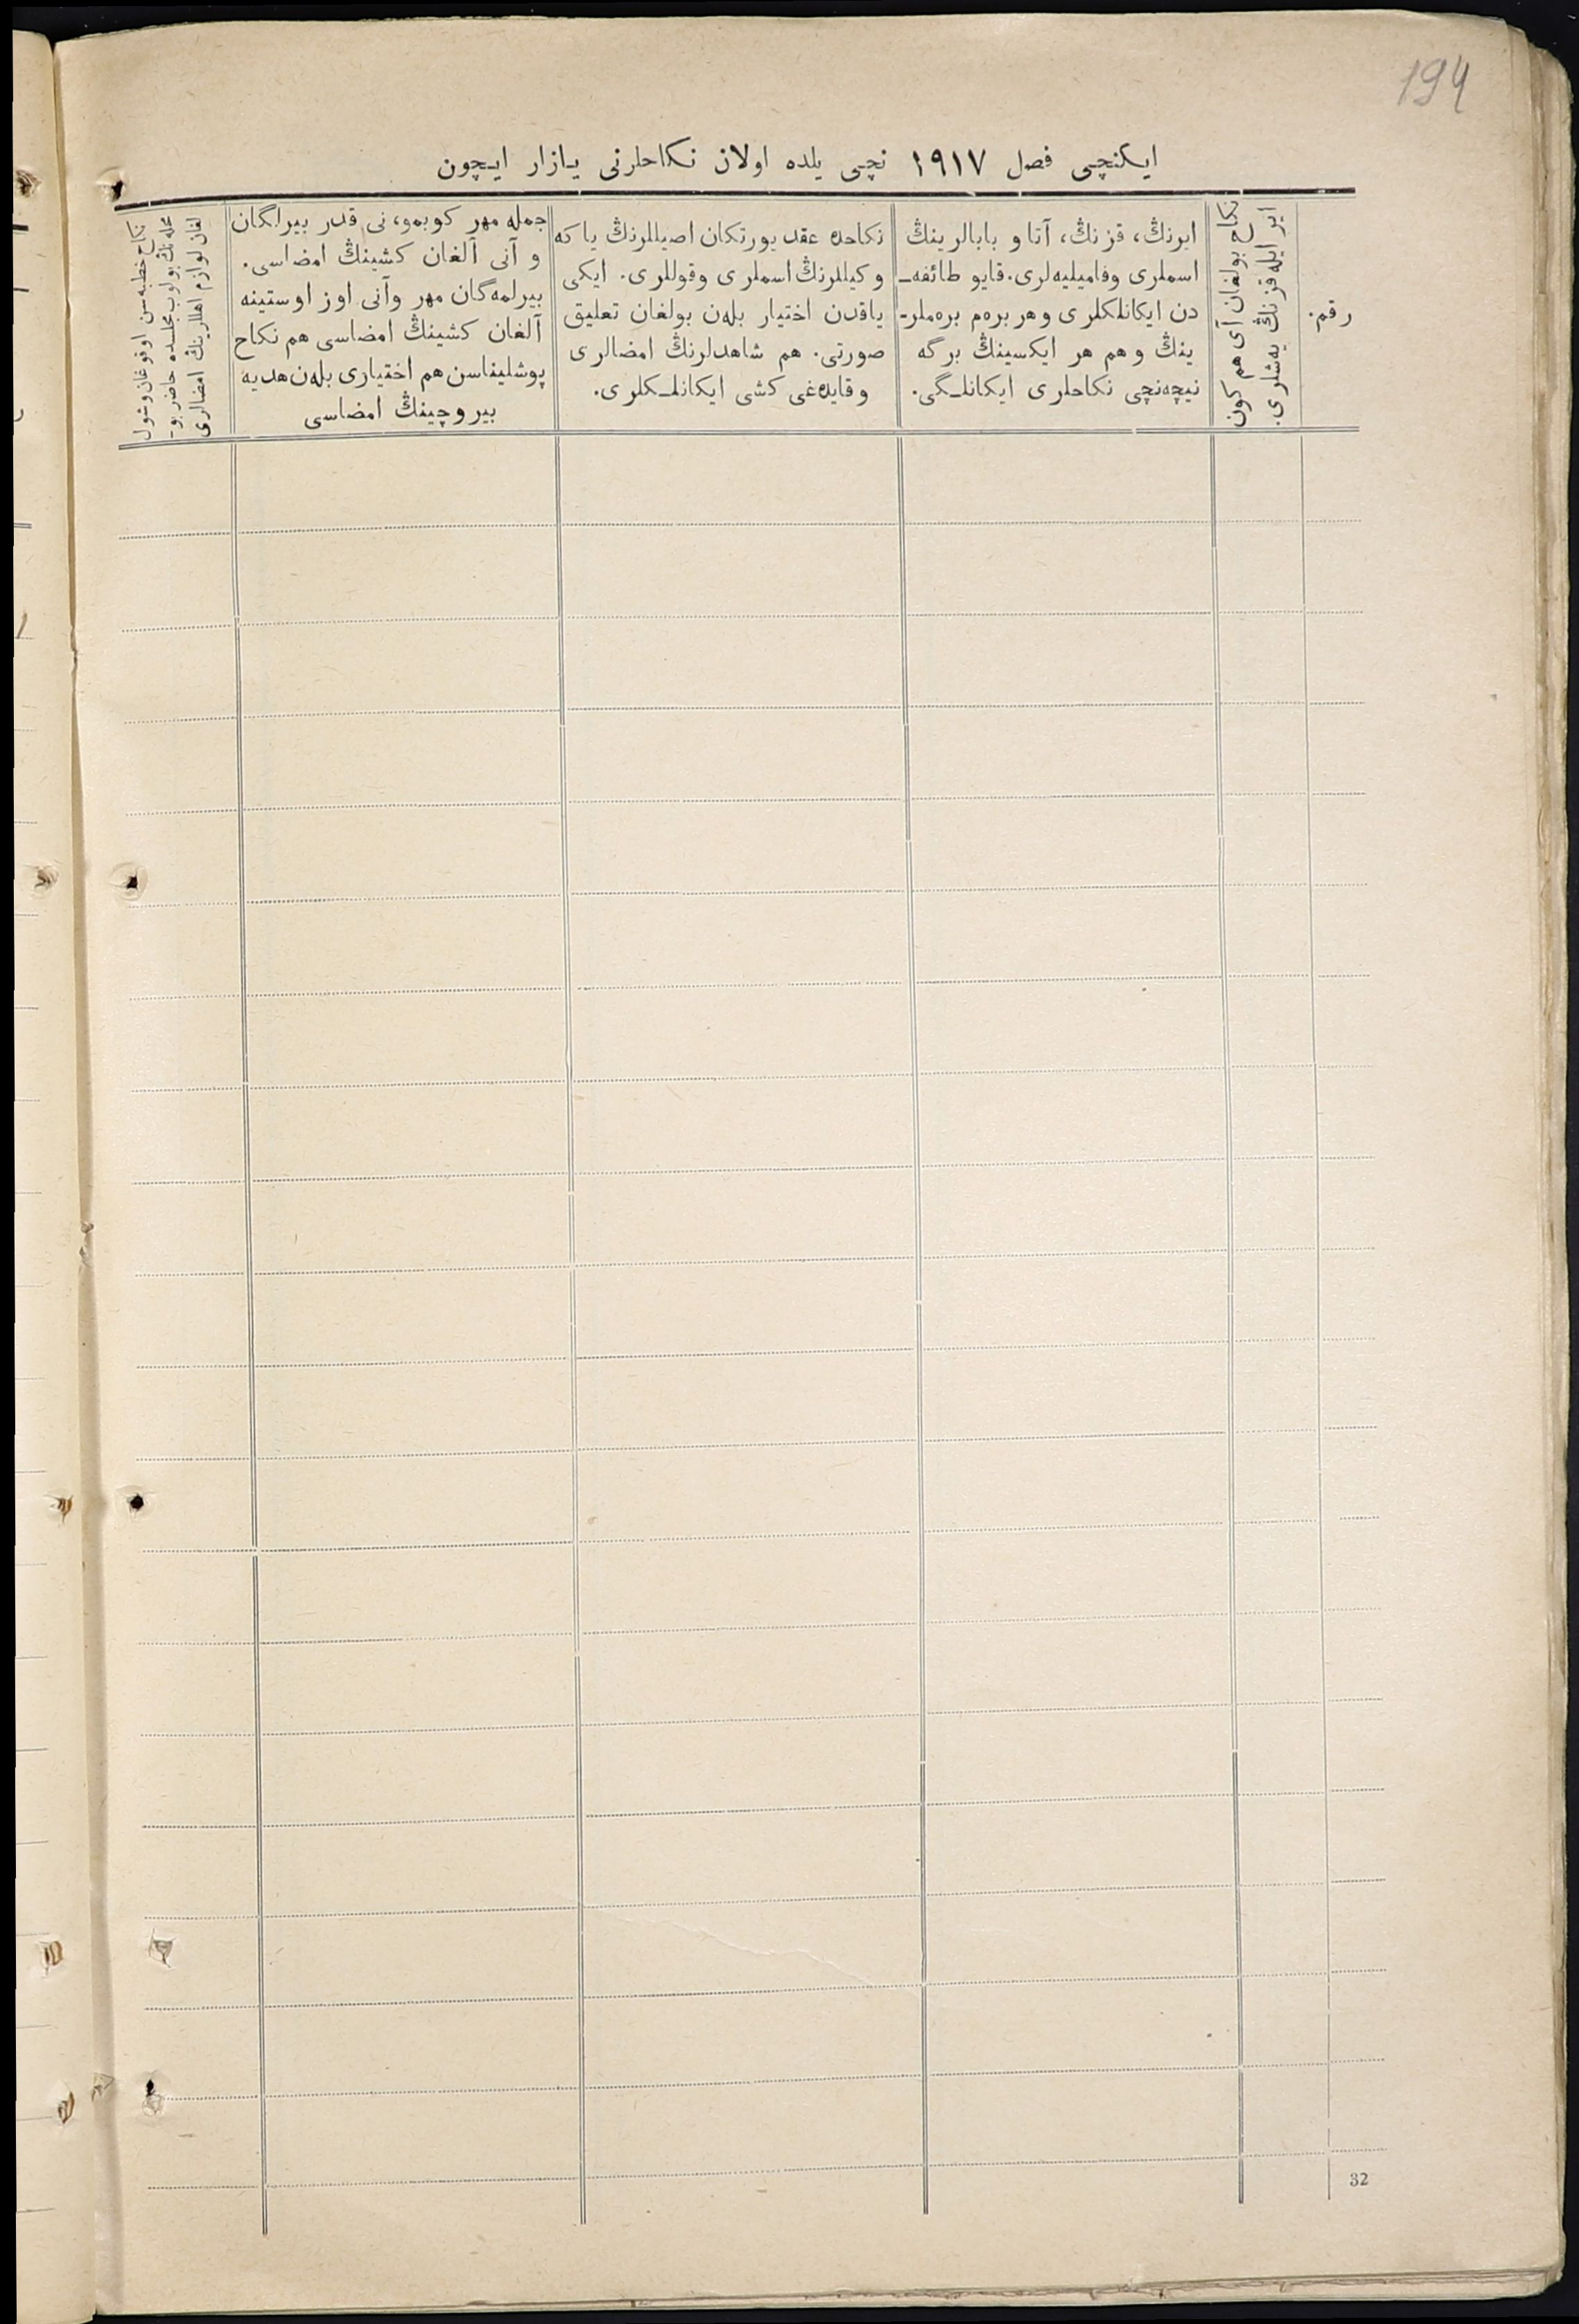 194
ایکنچی فصل ١٩١٧ نچی یلده اولان نکاحلرنی یازار ایچون
رقم.
نکاح بولغان آی هم کون
ایر ایله قزنڭ یه‌شلری.
ایرنڭ، قزنڭ، آتا و بابالرینڭ
اسملری وفامیلیه‌لری. قایو طائفه‌ـ
دن ایکانلکلری وهر بره‌م بره‌ملرـ
ینڭ وهم هر ایکسینڭ برگه
نیچه‌نچی نکاحلری ایکانلـگی.
نکاحده عقد یورتکان اصیللرنڭ یا که
وکیللرنڭ اسملری وقوللری. ایکی
یاقدن اختیار بله‌ن بولغان تعلیق
صورتی. هم شاهدلرنڭ امضالری
وقایده‌غی کشی ایکانلـکلری.
جمله مهر کوبمو، نی قدر بیرلگان
و آنی آلغان کشینڭ امضاسی.
بیرلمه‌گان مهر وآنی اوز اوستینه
آلغان کشینڭ امضاسی هم نکاح
پوشلیناسن هم اختیاری بله‌ن هدیه
بیروچینڭ امضاسی
نکاح خطبه‌سن اوقوغان وشول
محله‌نڭ بولوب مجلسده حاضر بوـ
لغان لوازم اهللارینڭ امضالری
32